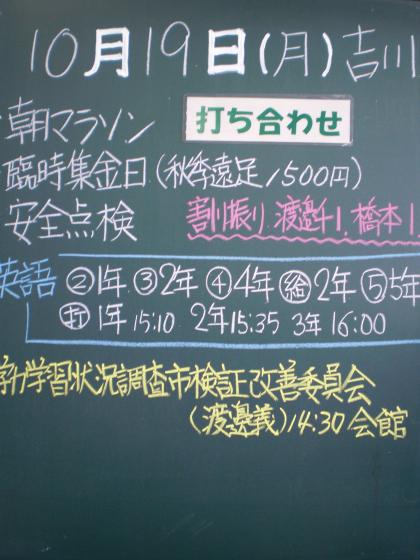 10月19日(月)吉川
朝マラソン 打ち合わせ
臨時集金日(秋季遠足1500円)
安全点検 割り振り.渡邉千1.橋本1.
英語 ②1年.③2年④4年㊕2年⑤5年
㊔1年15:10 2年15:35 3年16:00
学習状況調査市検証改善委員会
(渡邉義)14:30会館